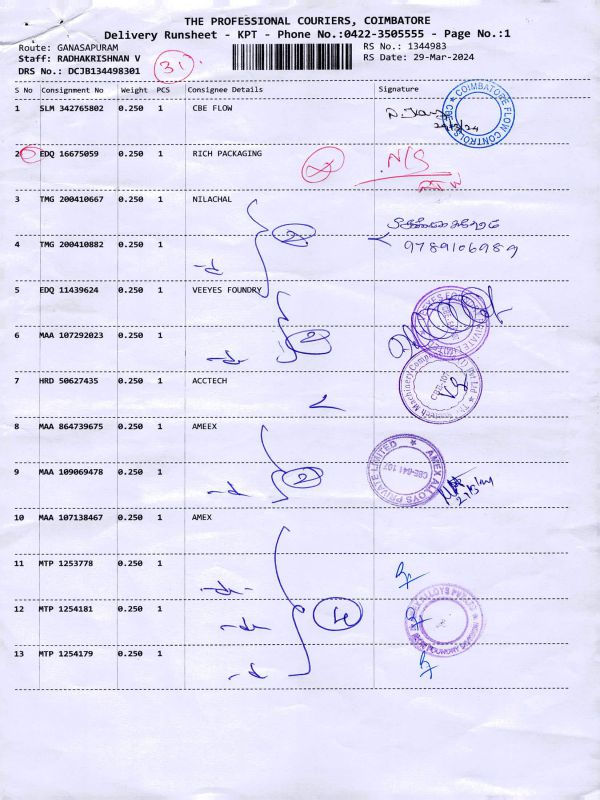 THE PROFESSIONAL COURIERS, COIMBATORE
Delivery Runsheet - KPT - Phone No.:0422-3505555 - Page No.:1
Route: GANASAPURAM RS No.: 1344983
Staff: RADHAKRISHNAN V RS Date: 29-Mar-2024
31
DRS No.: DCJB134498301
S No Consignment No Weight PCS Consignee Details Signature
1 SLM 342765802 0.250 1 CBE FLOW
COIMBATORE FLOW CONTROLS
CBE
2 EDQ 16675059 0.250 1 RICH PACKAGING N/S
3 TMG 200410667 0.250 1 NILACHAL
2
4 TMG 200410882 0.250 1 9789106989
-d-
5 EDQ 11439624 0.250 1 VEEYES FOUNDRY
6 MAA 107292023 0.250 1 2
-do-
7 HRD 50627435 0.250 1 ACCTECH
8 MAA 864739675 0.250 1 AMEEX
AMEX ALLOYS PRIVATE LIMITED
CBE-641 107
9 MAA 109069478 0.250 1 2
-d-
10 MAA 107138467 0.250 1 AMEX
11 MTP 1253778 0.250 1
-do-
12 MTP 1254181 0.250 1 4
-do-
13 MTP 1254179 0.250 1
-d-